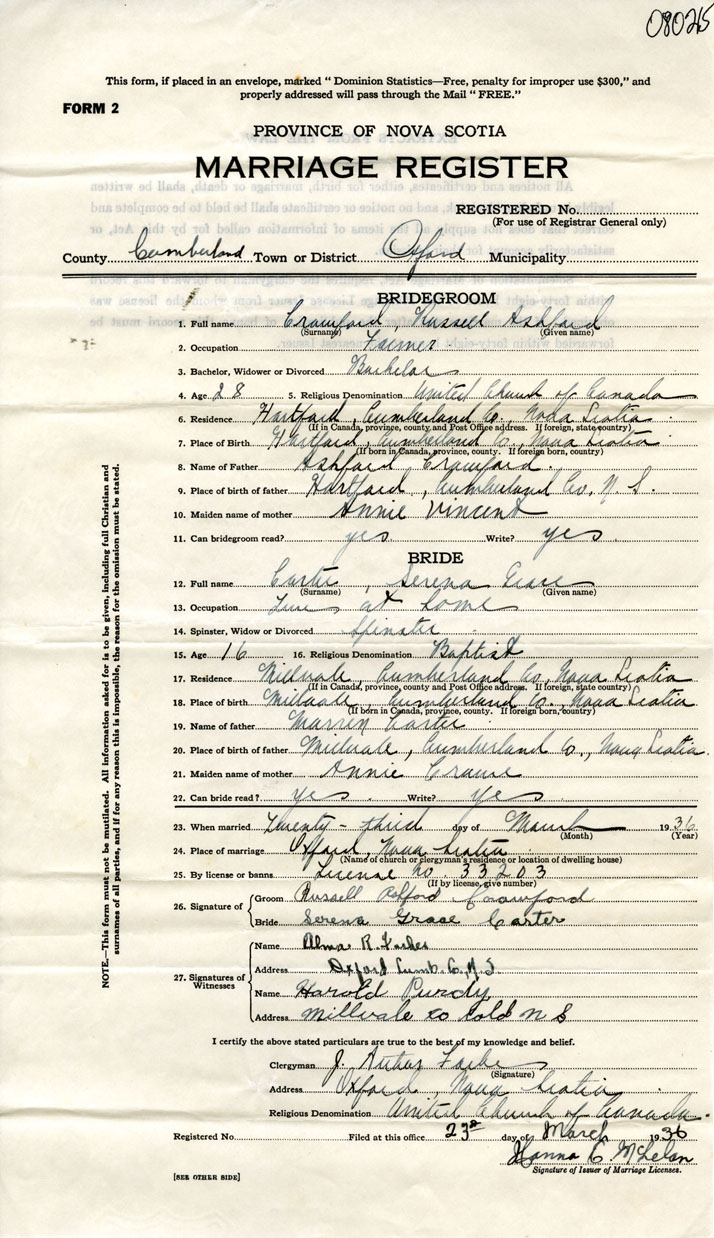 080265
This form, if placed in an envelope, marked " Dominion Statistics—Free, penalty for improper use $300," and
properly addressed will pass through the Mail " FREE."
FORM 2
PROVINCE OF NOVA SCOTIA
MARRIAGE REGISTER
REGISTERED No.
(For use of Registrar General only)
County Cumberland Town or District Oxford Municipality
BRIDEGROOM
1. Full name Crawford, Russell Ashford
(Surname) (Given name)
2. Occupation Farmer
3. Bachelor, Widower or Divorced Bachelor
4. Age 28 5. Religious Denomination United Church of Canada
6. Residence Hartford, Cumberland Co., Nova Scotia
(If in Canada, province, county and Post Office address. If foreign, state country)
7. Place of Birth Hartford, Cumberland Co., Nova Scotia
(If born in Canada, province, county. If foreign born, country)
8. Name of Father Ashford Crawford
9. Place of birth of father Hartford, Cumberland Co, N. S.
10. Maiden name of mother Annie Vincent
11. Can bridegroom read? yes Write? yes
BRIDE
12. Full name Carter, Serena Grace
(Surname) (Given name)
13. Occupation Live at home
14. Spinster, Widow or Divorced Spinster
15. Age 16 16. Religious Denomination Baptist
17. Residence Millvale, Cumberland Co, Nova Scotia
(If in Canada, province, county and Post Office address. If foreign, state country)
18. Place of birth Millvale, Cumberland Co. Nova Scotia
(If born in Canada, province, county. If foreign born, country)
19. Name of father Warren Carter
20. Place of birth of father Millvale, Cumberland Co., Nova Scotia
21. Maiden name of mother Annie
22. Can bride read? yes Write? yes
23. When married Twenty-third day of March 1936
(Month) (Year)
24. Place of marriage Oxford, Nova Scotia
(Name of church or clergyman's residence or location of dwelling house)
25. By license or banns License no. 33203
(If by license, give number)
26. Signature of Groom Russell Crawford
Bride Serena Grace Carter
27. Signatures of Witnesses
Name Alma R.
Address Oxford Cumb. Co., N.S.
Name Harold Purdy
Address Millvale Co N S
I certify the above stated particulars are true to the best of my knowledge and belief.
Clergyman J. Arthur
(Signature)
Address Oxford, Nova Scotia
Religious Denomination United Church of Canada.
Registered No. Filed at this office 23rd day of March 1936
Hanna C.
Signature of Issuer of Marriage Licenses.
[SEE OTHER SIDE]
NOTE.—This form must not be mutilated. All information asked for is to be given, including full Christian and
surnames of all parties, and if for any reason this is impossible, the reason for the omission must be stated.